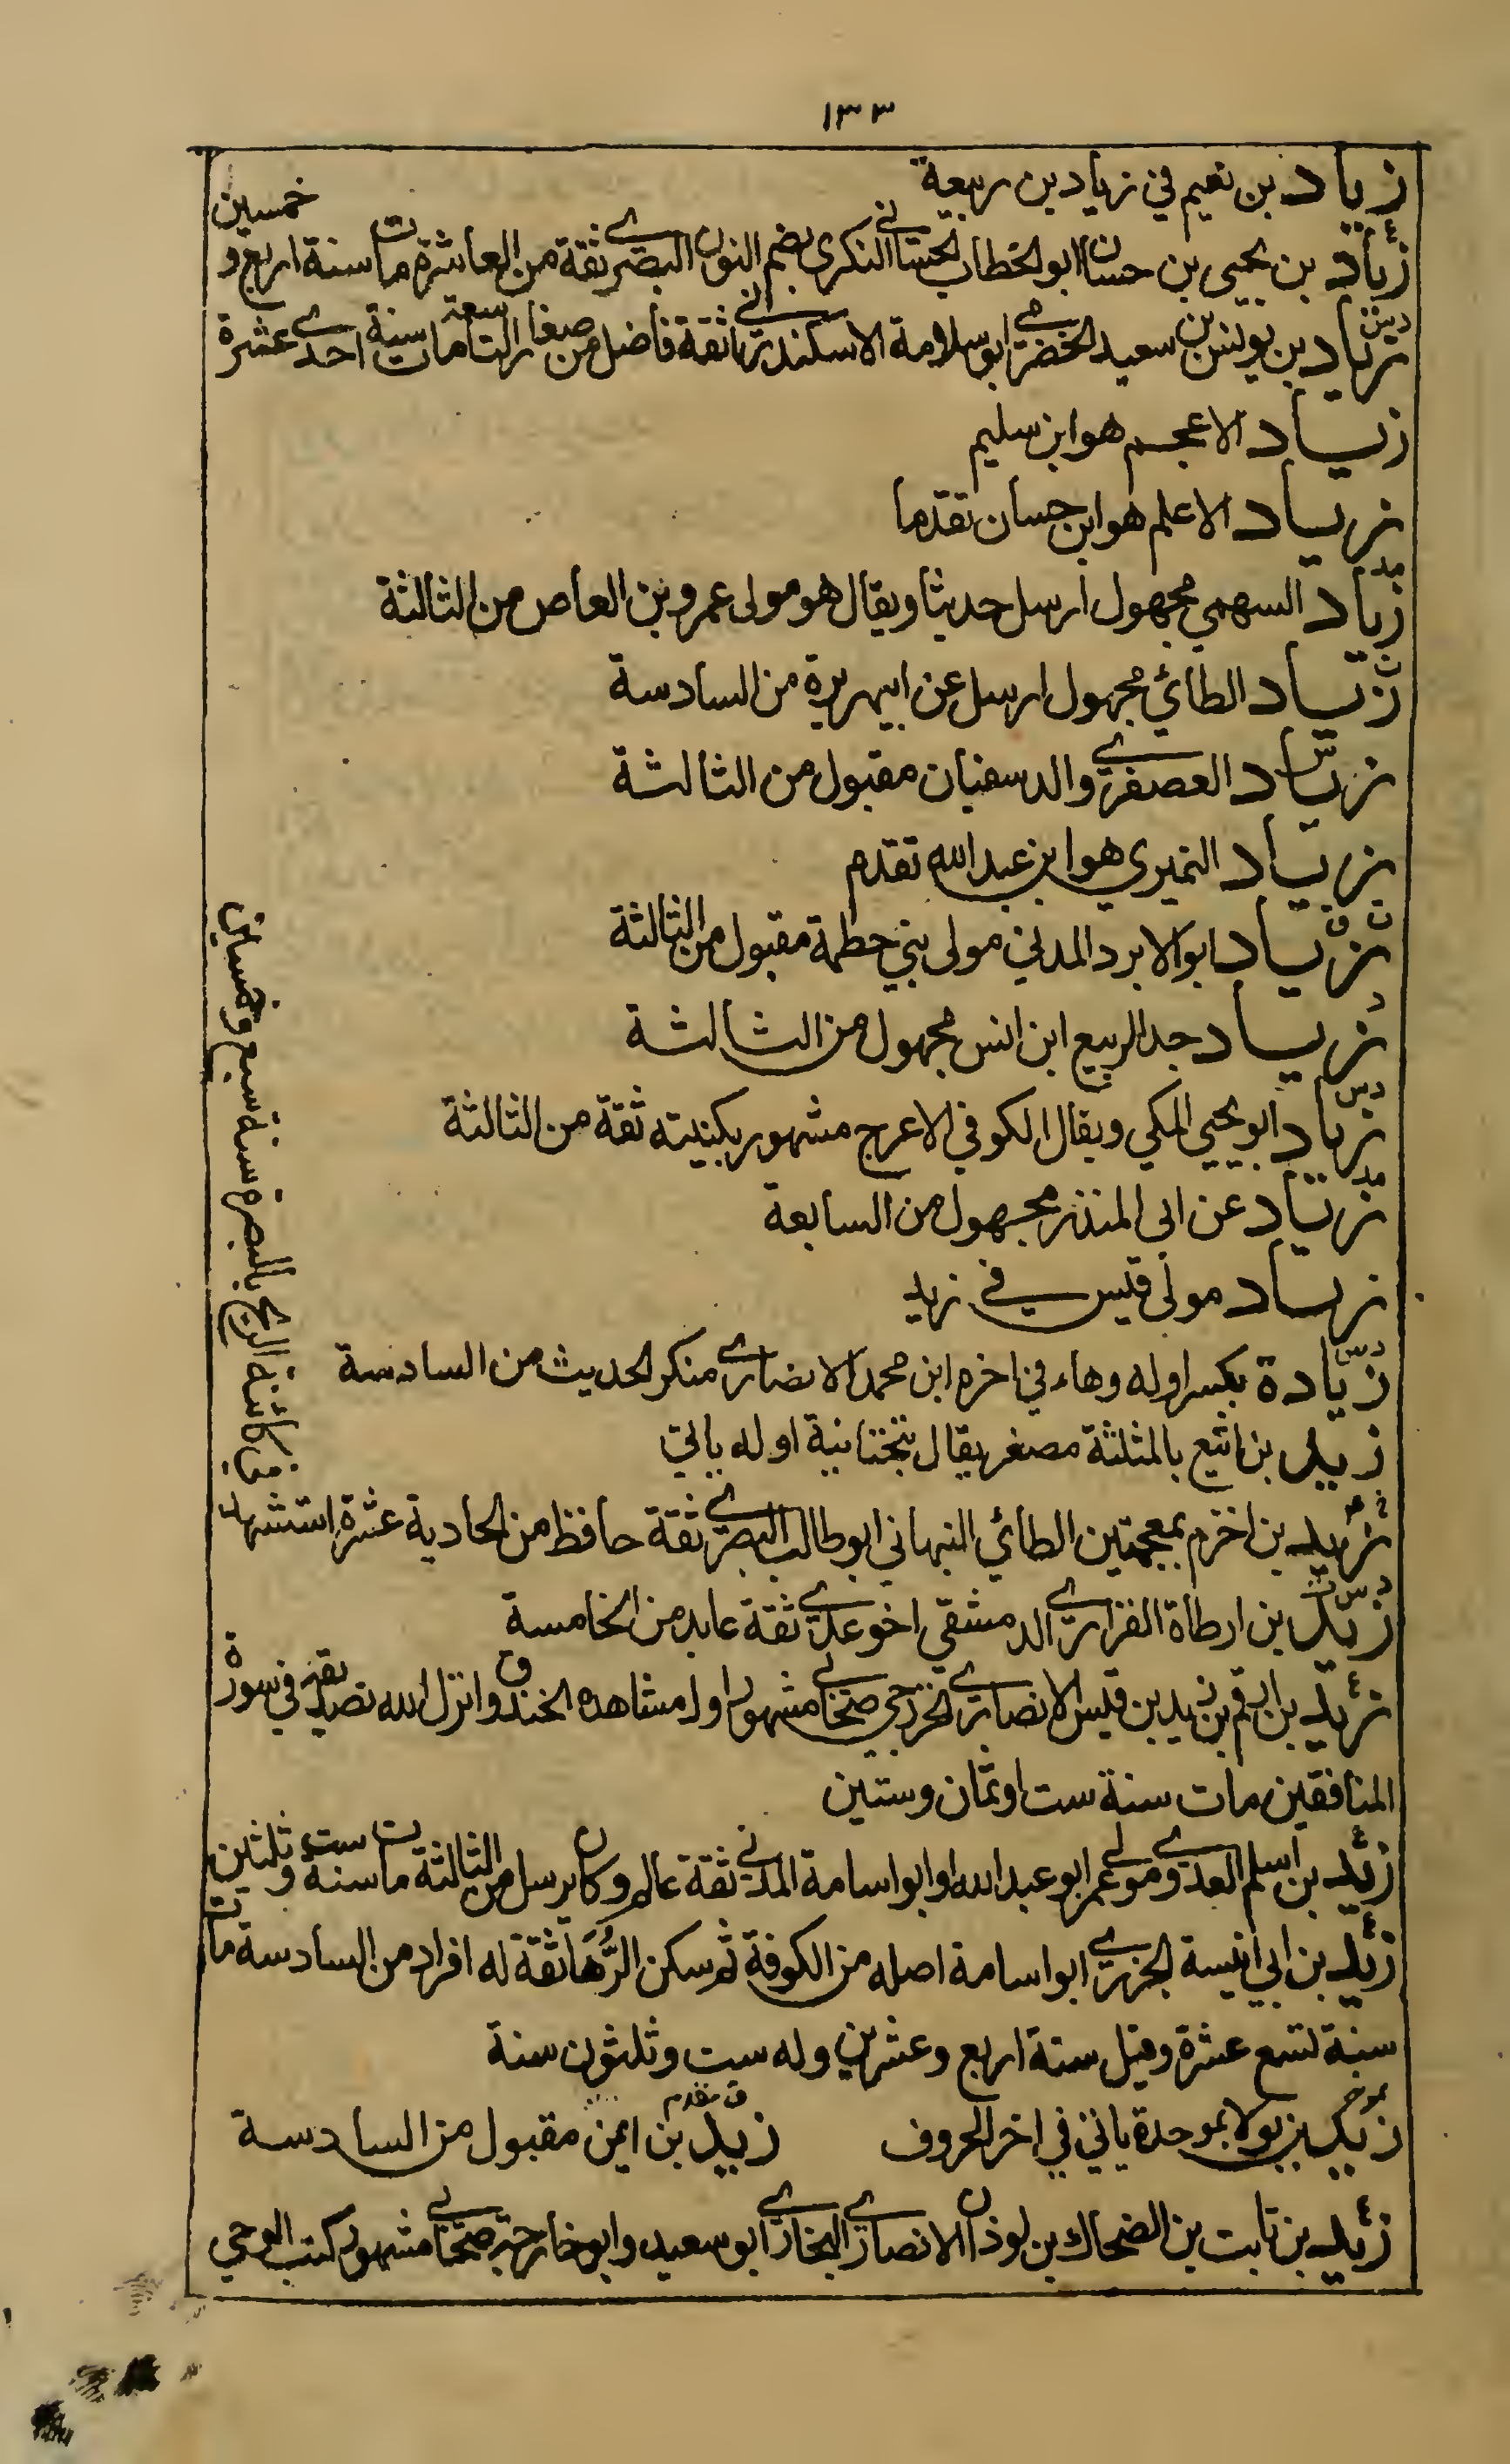 ١٣٣
زياد بن نعيم في زياد بن ربيعة
زياد بن يحيى بن حسان ابو الخطاب الحساني النكرى بضم النون البصري ثقة من العاشرة مات سنة اربع و خمسين
زياد بن يونس بن سعيد الحضرمي ابو سلامة الاسكندراني ثقة فاضل من صغار التاسعة مات سنة احدى عشرة
زياد الاعجم هو ابن سليم
زياد الاعلم هو ابن حسان تقدما
زياد السهمي مجهول ارسل حديثا ويقال هو مولى عمرو بن العاص من الثالثة
زياد الطائي مجهول ارسل عن ابي هريرة من السادسة
زياد العصفري والد سفيان مقبول من الثالثة
زياد النميري هو ابن عبد الله تقدم
زياد ابو الابرد المدني مولى بني خطمة مقبول من الثالثة
زياد جد الربيع ابن انس مجهول من الثالثة
زياد ابو يحيى المكي ويقال الكوفي الاعرج مشهور بكنيته ثقة من الثالثة
زياد عن ابي المنذر مجهول من السابعة
زياد مولى قيس في زيد
زيادة بكسر اوله وهاء في اخره ابن محمد الانصاري منكر الحديث من السادسة
زيد بن اثيع بالمثلثة مصغر يقال بتحتانية اوله ياتي
زيد بن اخزم بمعجمتين الطائي النبهاني ابو طالب البصري ثقة حافظ من الحادية عشرة استشهد
في كائنة الزنج بالبصرة سنة سبع وخمسين
زيد بن ارطاة الفزاري الدمشقي اخو عدي ثقة عابد من الخامسة
زيد بن ارقم بن زيد بن قيس الانصاري الخزرجي صحابي مشهور اول مشاهده الخندق وانزل الله تصديقه في سورة
المنافقين مات سنة ست او ثمان وستين
زيد بن اسلم العدوي مولى عمر ابو عبد الله او ابو اسامة المدني ثقة عالم وكان يرسل من الثالثة مات سنة ست وثلثين
زيد بن ابي انيسة الجزري ابو اسامة اصله من الكوفة ثم سكن الرُّهَا ثقة له افراد من السادسة مات
سنة تسع عشرة وقيل سنة اربع وعشرين وله ست وثلثون سنة
زيد بن بولا بموحدة ياتي في اخر الحروف زيد بن ايمن مقبول من السادسة
زيد بن ثابت بن الضحاك بن لوذان الانصاري النجاري ابو سعيد وابو خارجة صحابي مشهور كتب الوحي